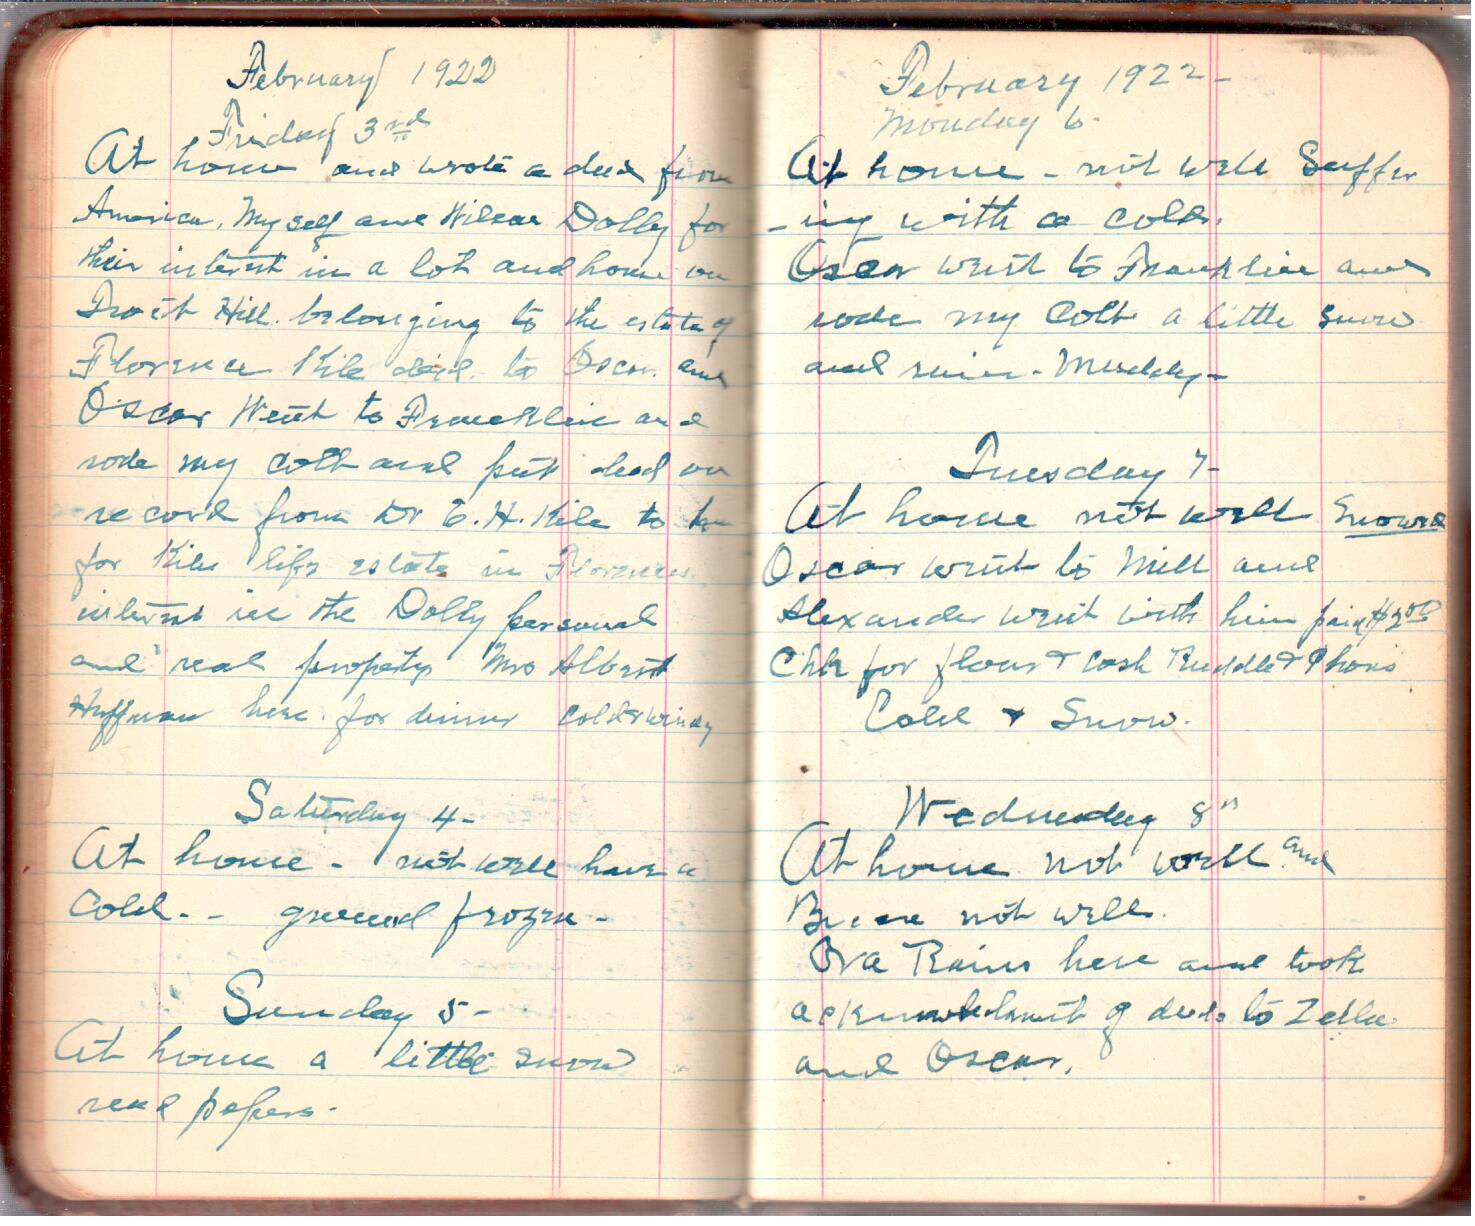 February 1922
Friday 3rd
At home and wrote a deed from
America, Myself and Wilson Dolly for
their interest in a lot and home on
Trout Hill belonging to the estate of
Florence Kile decd. to Oscar. and
Oscar Went to Franklin and
rode my colt and put deed on
record from Dr E. H. Kile to
for Kiles life estate in Florences
interest in the Dolly personal
and real property Mrs Albert
Huffman here for dinner cold & windy
Saturday 4-
At home - not well have a
cold. - ground frozen -
Sunday 5-
At home a little snow
read papers.
February 1922-
Monday 6-
At home - not well Suffer
-ing with a cold.
Oscar went to Franklin and
rode my Colt a little snow
and rain - Muddy -
Tuesday 7-
At home not well Snowed
Oscar went to Mill and
Alexander went with him paid $2.00
Chk for flour & cash Ruddle & Phons
Cold & Snow.
Wednesday 8"
At home not well and
not well.
Ora Rains here and took
acknowledgment of deeds to Zella
and Oscar.